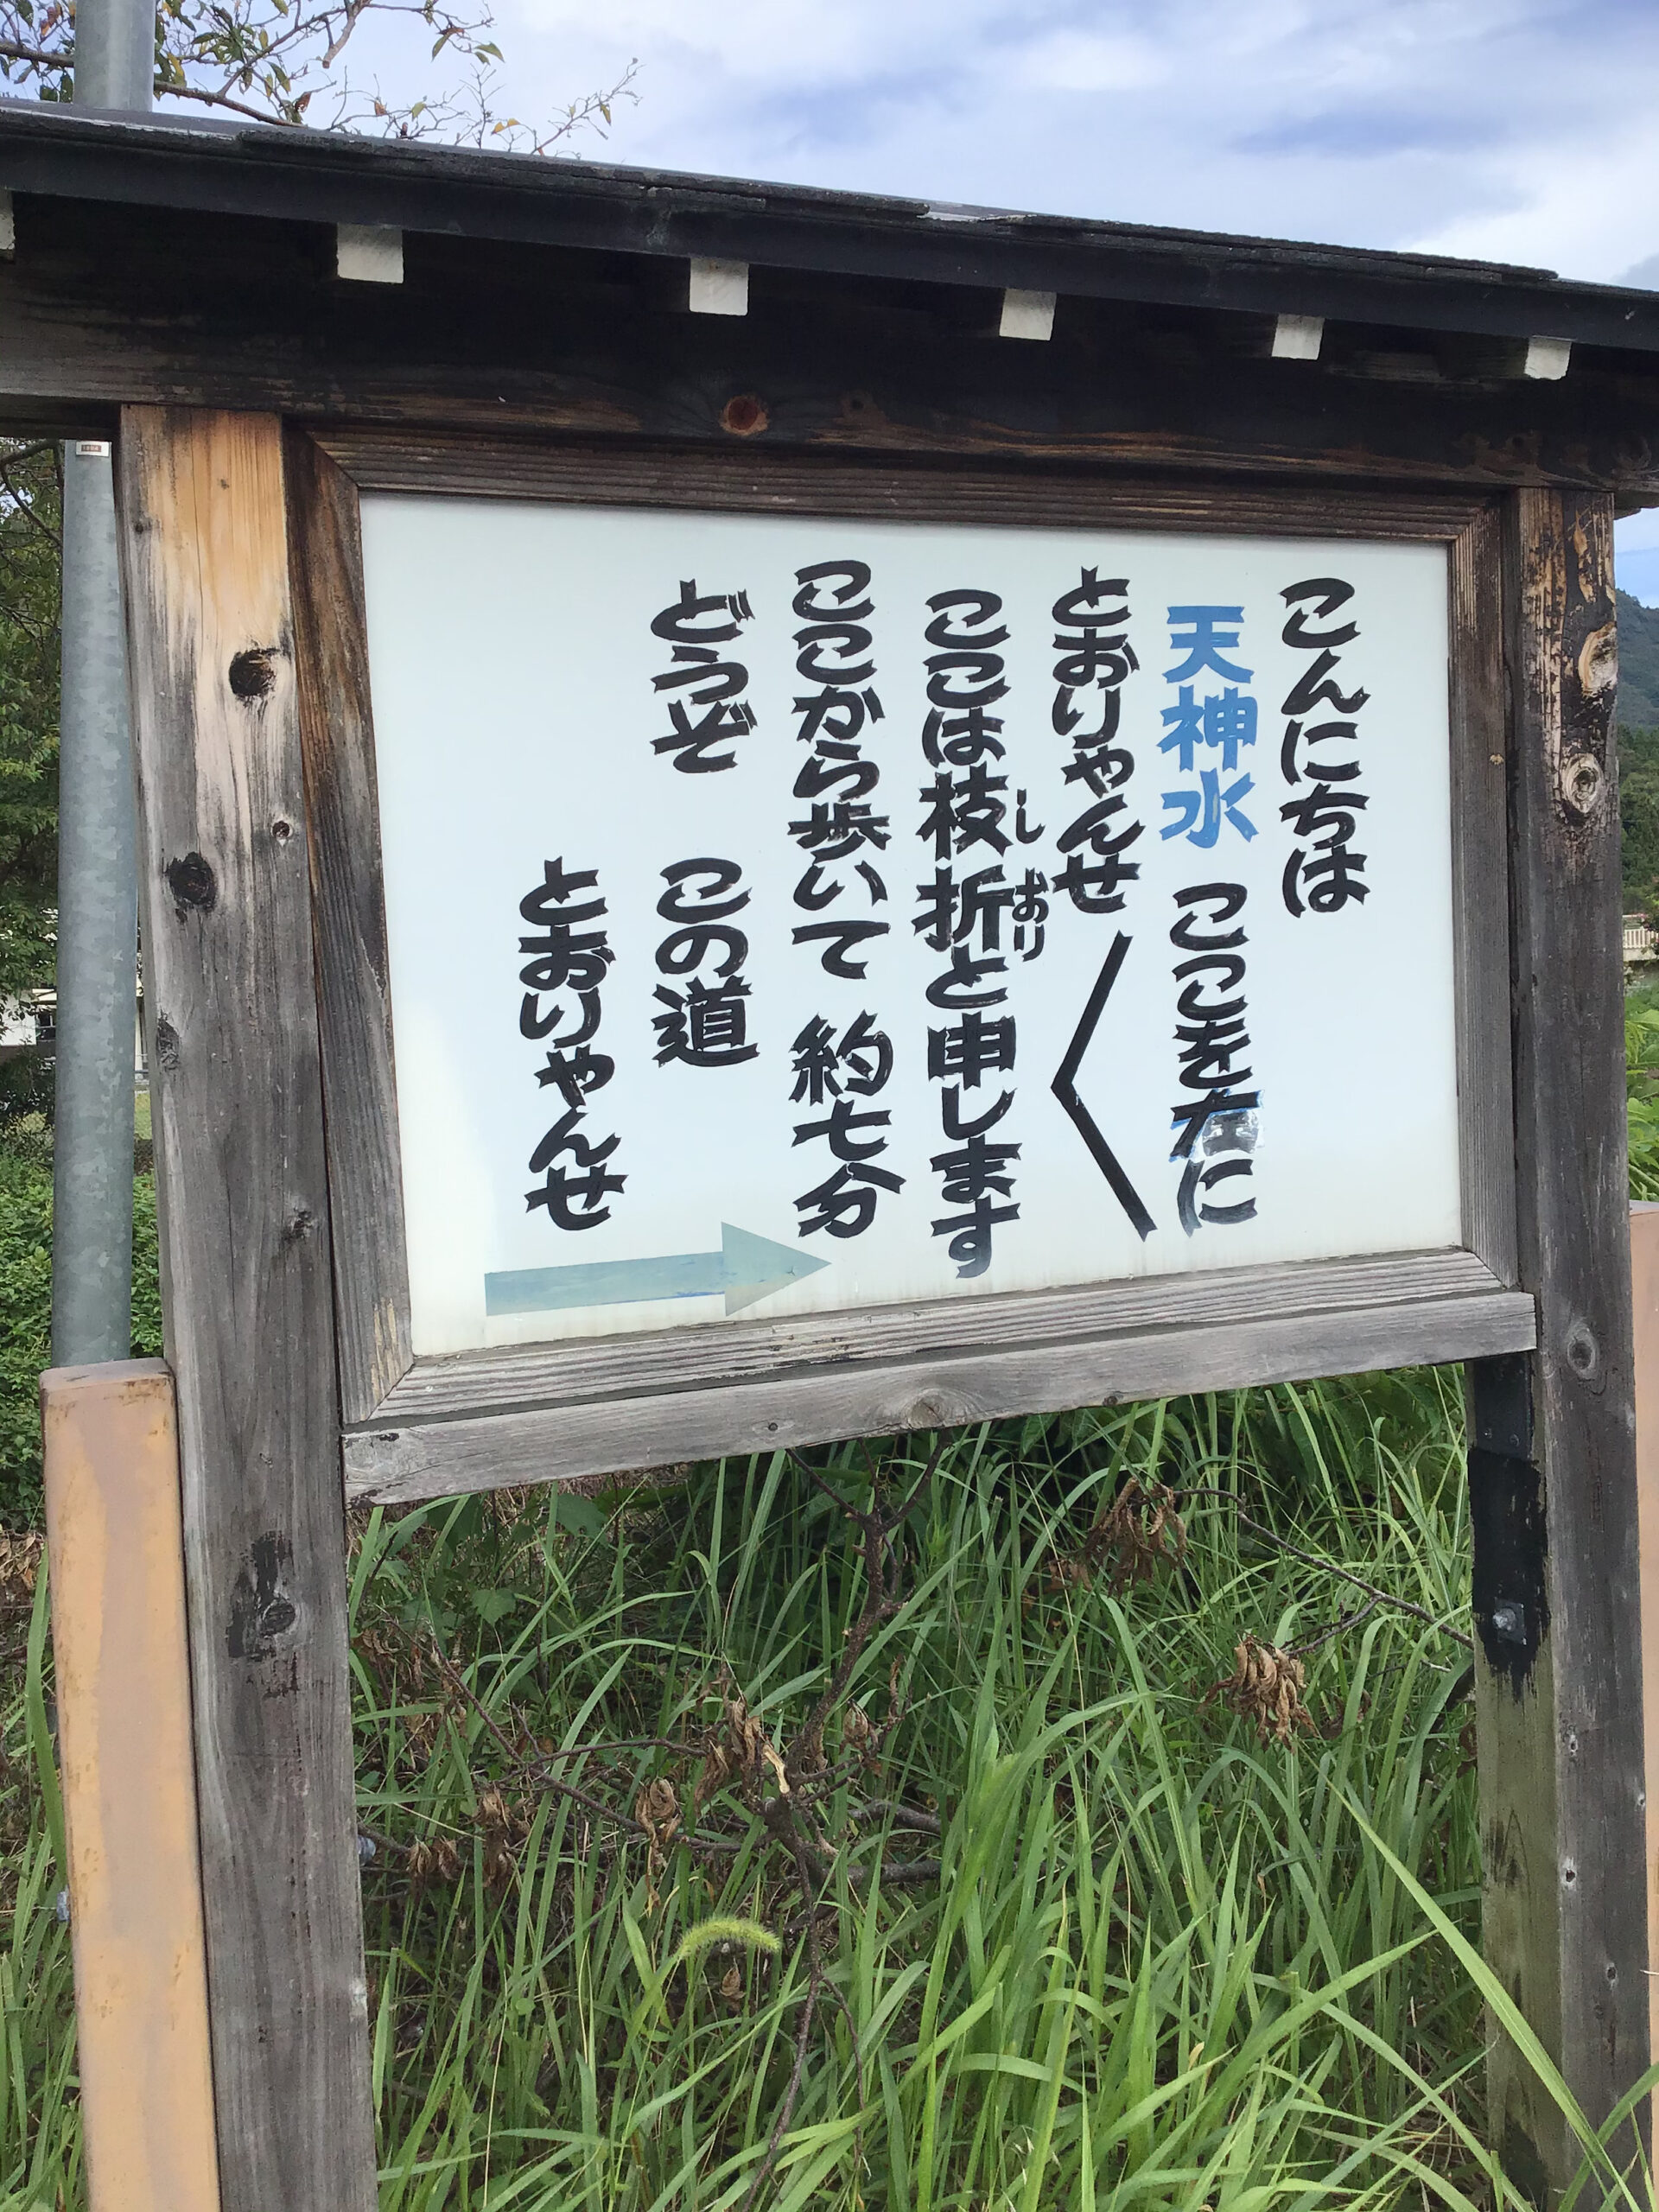 こんにちは
天神水 ここを
とおりゃんせ〱
ここは枝折と申します
しおり
ここから歩いて 約七分
どうぞ この道
とおりゃんせ